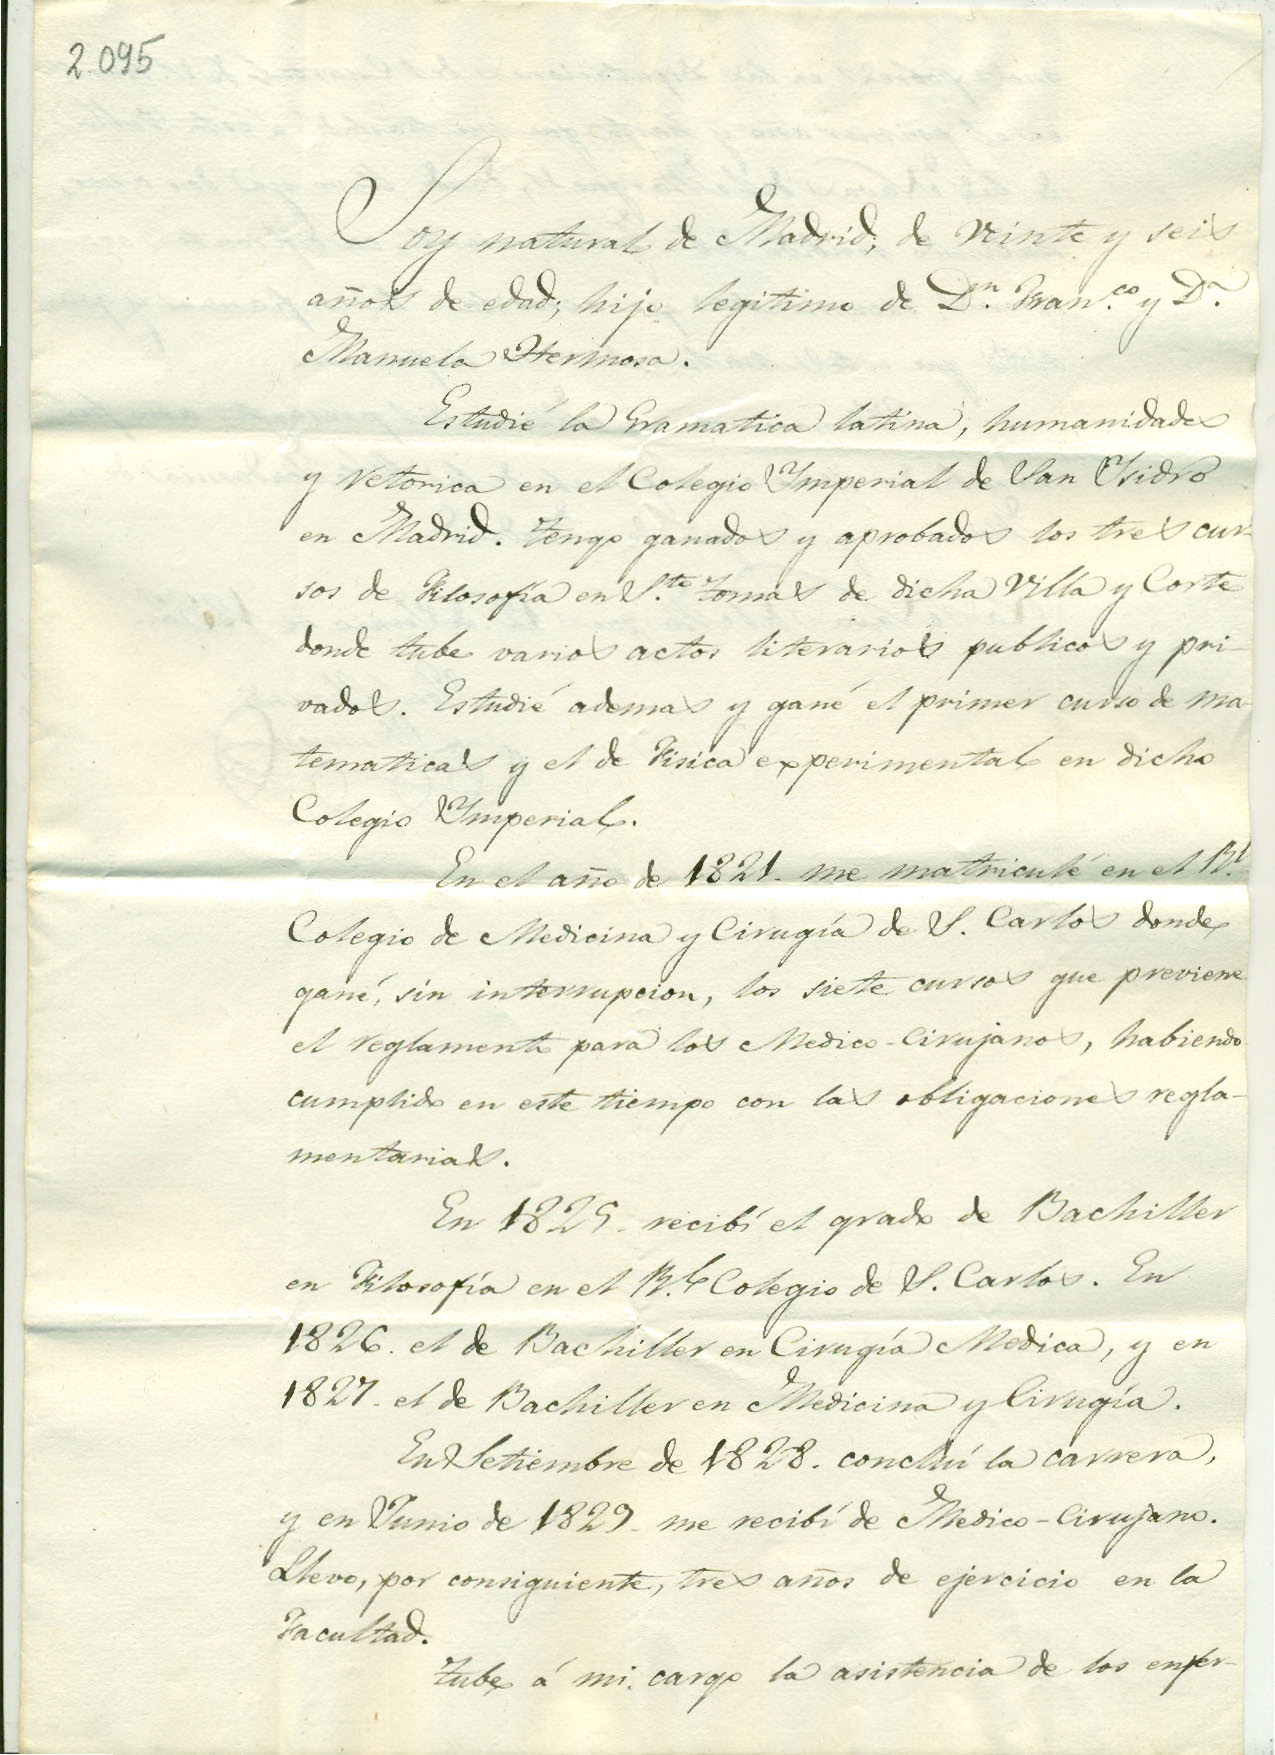 2.095
Soy natural de Madrid, de veinte y seis
años de edad; hijo legitimo de Dn. Franco. y Da.
Manuela Hermosa.
Estudié la Gramatica latina, humanidades
y retorica en el Colegio Ymperial de San Ysidro
en Madrid. Tengo ganados y aprobados los tres cur-
sos de Filosofía en Sto. Tomas de dicha Villa y Corte
donde tube varios actos literarios publicos y pri-
vados. Estudié ademas y gané el primer curso de ma-
tematicas y el de Fisica experimental en dicho
Colegio Ymperial.
En el año de 1821. me matriculé en el Rl.
Colegio de Medicina y Cirugía de S. Carlos donde
gané, sin interrupcion, los siete cursos que previene
el reglamento para los Medico-Cirujanos, habiendo
cumplido en este tiempo con las obligaciones regla-
mentarias.
En 1825. recibí el grado de Bachiller
en Filosofía en el Rl. Colegio de S. Carlos. En
1826. el de Bachiller en Cirugía Medica, y en
1827. el de Bachiller en Medicina y Cirugía.
En Setiembre de 1828. concluí la carrera,
y en Junio de 1829. me recibí de Medico-Cirujano.
Llevo, por consiguiente, tres años de ejercicio en la
Facultad.
Tube á mi cargo la asistencia de los enfer-